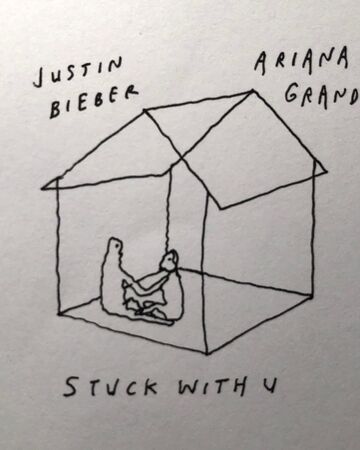 JUSTIN
BIEBER
ARIANA
GRAND
STUCK WITH U